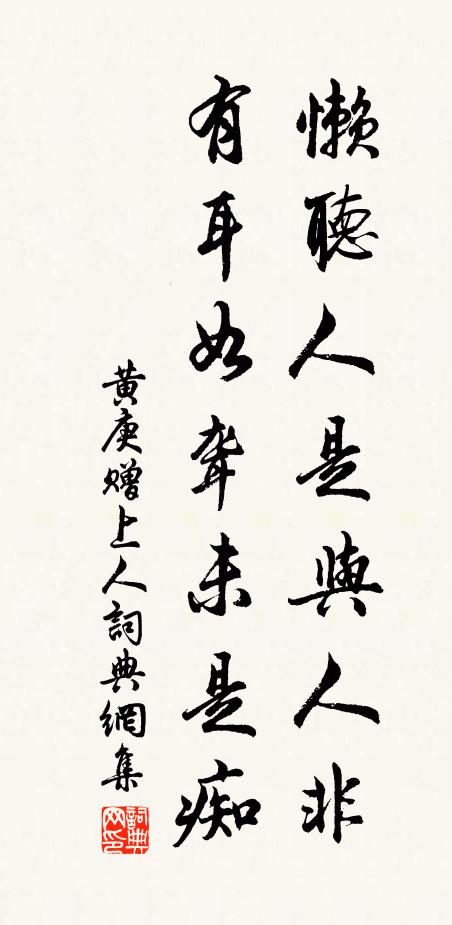 懶聽人是與人非
有耳如聾未是痴
黄庚贈上人詞典網集
詞典网印